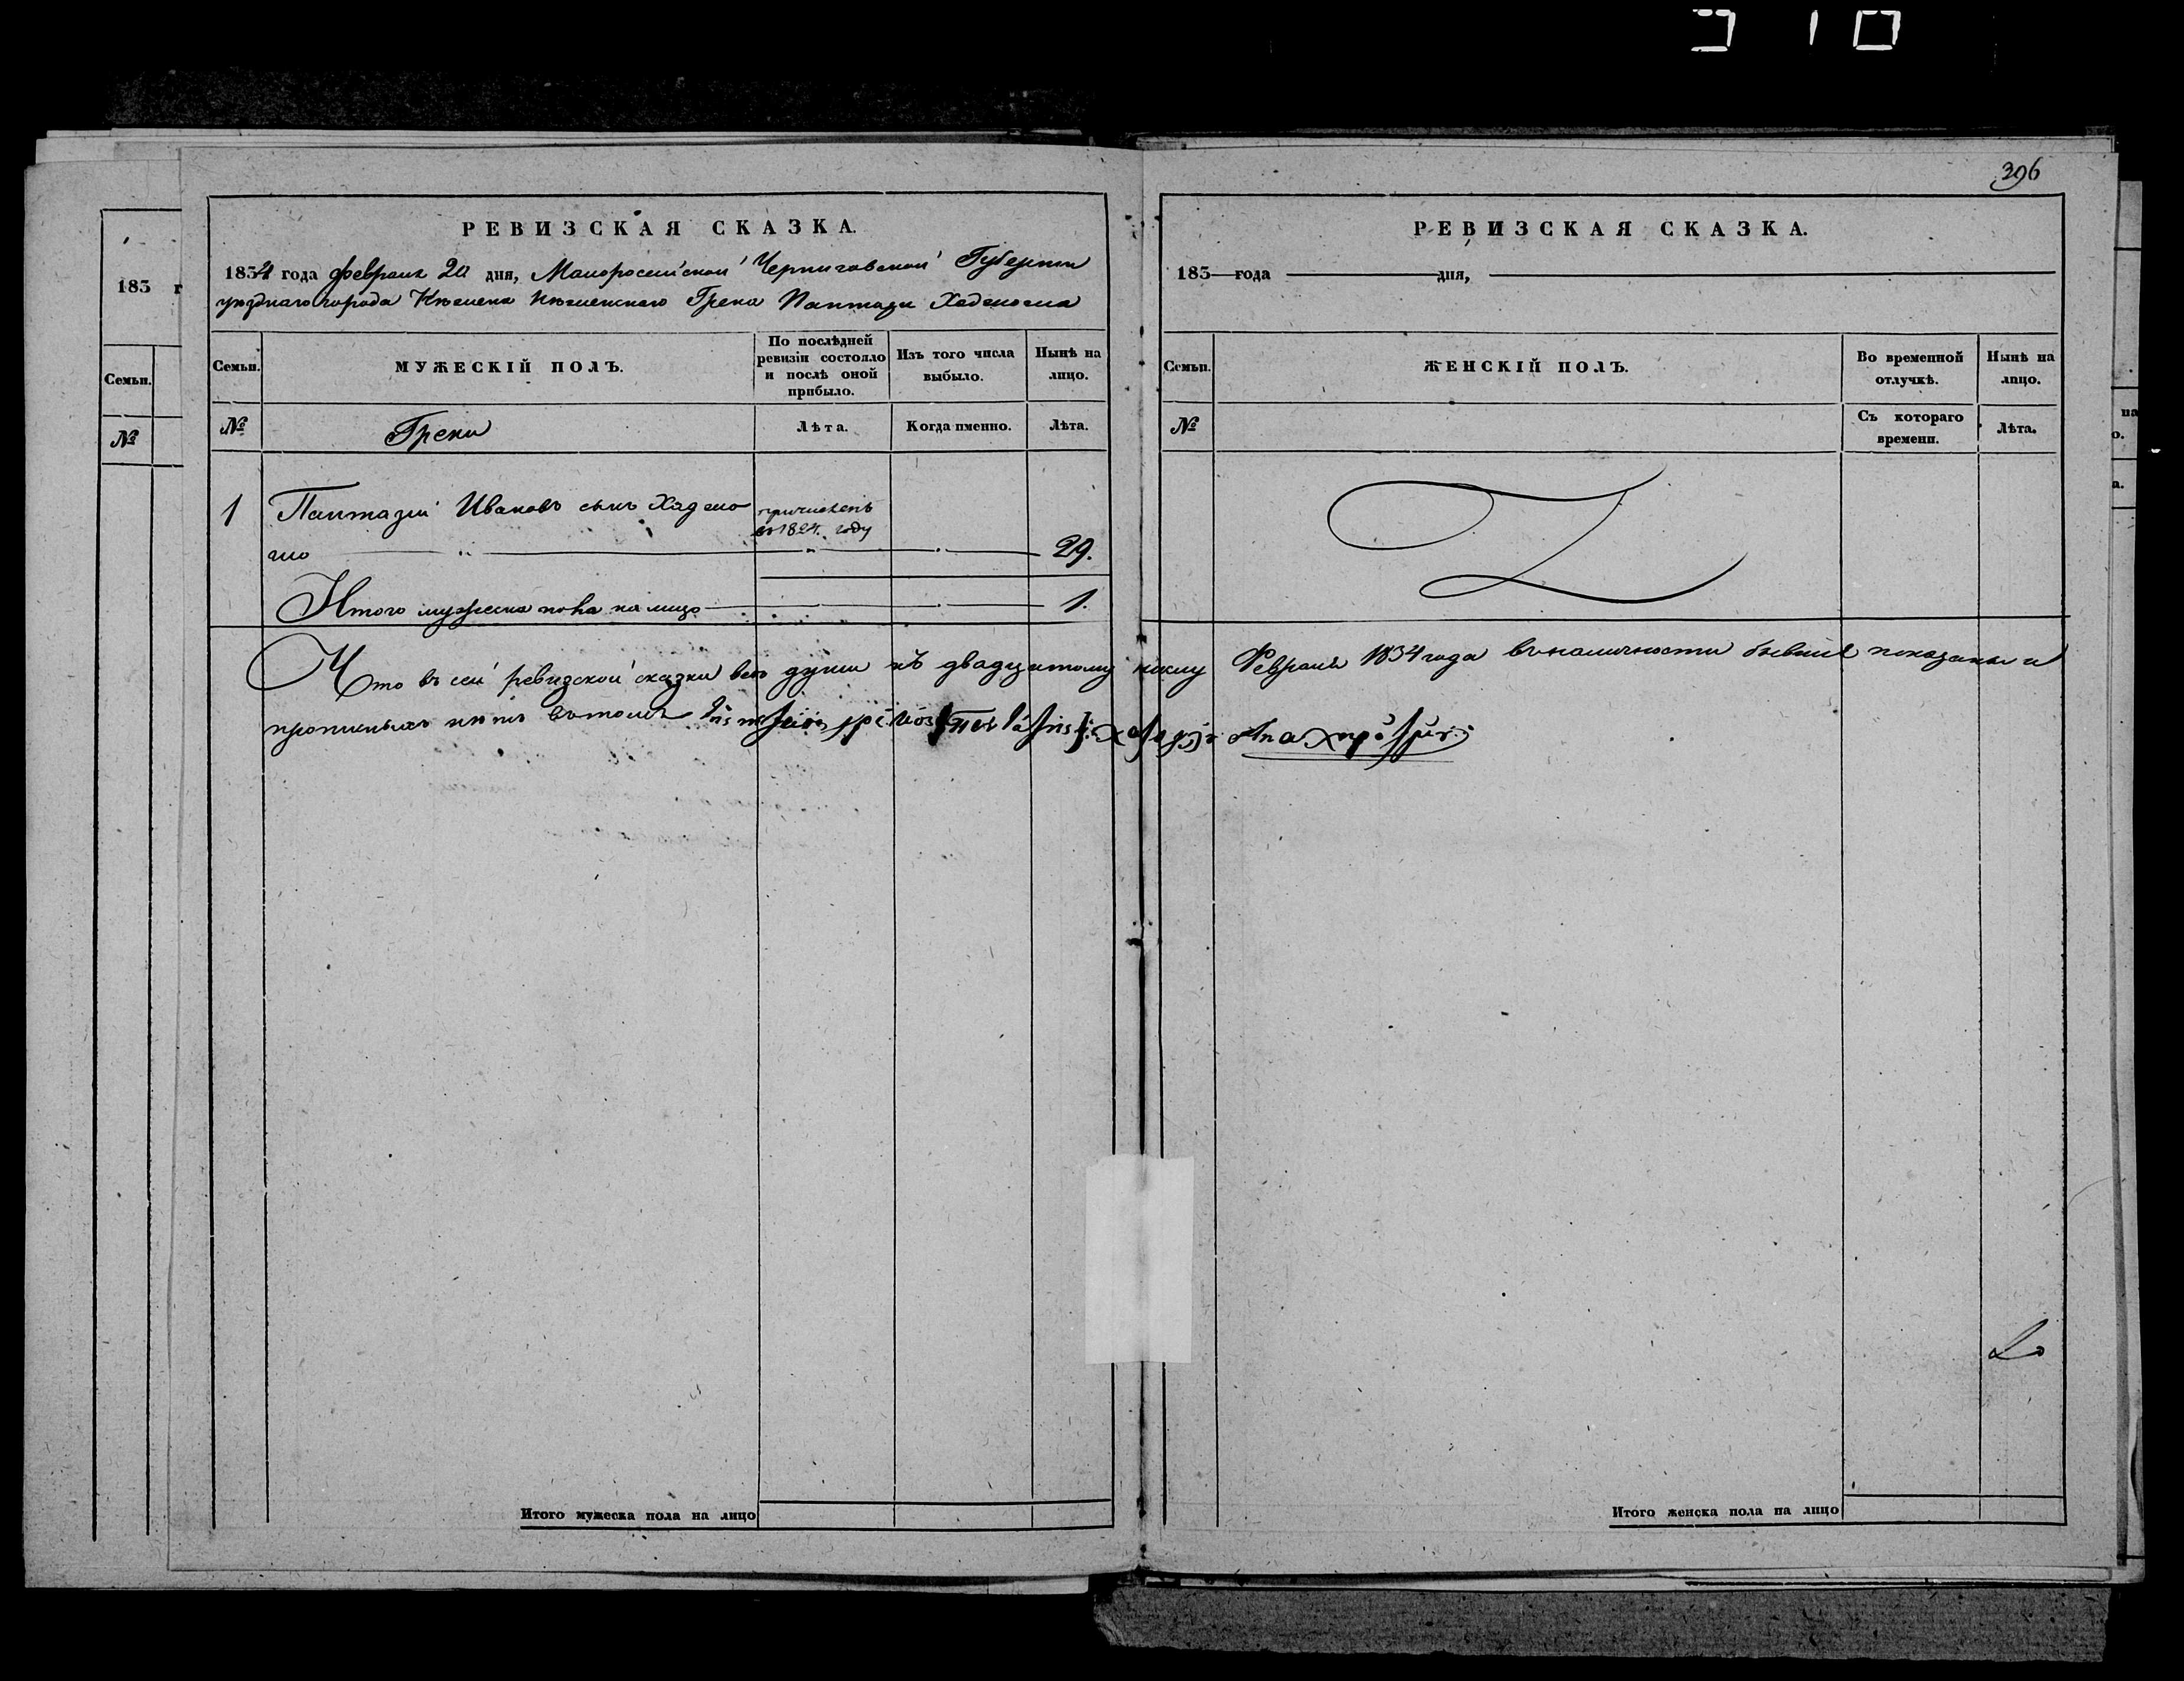 310
396
РЕВИЗСКАЯ СКАЗКА.
1834 года февраля 20 дня, Малоросийской Черниговской Губернии
уезднаго города Нежена Неженскаго Грека Пантази
Семьи.
МУЖЕСКІЙ ПОЛЪ.
По послѣдней ревизіи состояло и послѣ оной прибыло.
Изъ того числа выбыло.
Нынѣ на лицо.
№
Греки
Лѣта.
Когда именно.
Лѣта.
1 Пантазий Ивановъ сынъ причисленъ
въ 1824. году
29.
Итого мужеска пола на лицо 1.
РЕВИЗСКАЯ СКАЗКА.
183 года дня,
Семьи.
ЖЕНСКІЙ ПОЛЪ.
Во временной отлучкѣ.
Нынѣ на лицо.
№
Съ котораго времени.
Лѣта.
Что въ сей ревизской сказки все души къ двадцатому числу Февраля 1834 года въ наличности бывшие показаны и
прописныхъ нетъ въ томъ
Итого мужеска пола на лицо
Итого женска пола на лицо
183 г
Семьи.
№